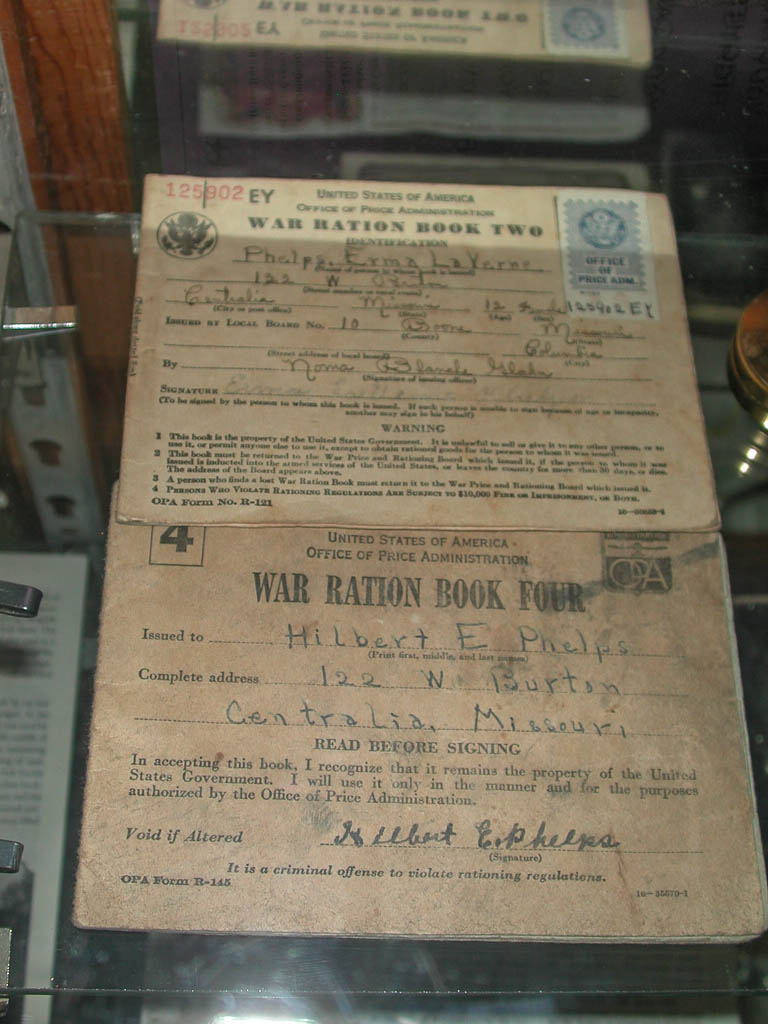 WAR RATION BOOK TWO
125902 EY
125902 EY UNITED STATES OF AMERICA
OFFICE OF PRICE ADMINISTRATION
WAR RATION BOOK TWO
IDENTIFICATION
OFFICE
OF
PRICE ADM.
Phelps, Erma LaVerne
(Name of person to whom book is issued)
122 W Burton
(Street number or rural route)
Centralia Missouri 12 125902 EY
(City or post office) (State) (Age) (Sex)
ISSUED BY LOCAL BOARD NO. 10 Boone Missouri
(County) (State)
Columbia
(Street address of local board) (City)
By Noma Blanche
(Signature of issuing officer)
SIGNATURE
(To be signed by the person to whom this book is issued. If such person is unable to sign because of age or incapacity,
another may sign in his behalf)
WARNING
1 This book is the property of the United States Government. It is unlawful to sell or give it to any other person, or to
use it, or permit anyone else to use it, except to obtain rationed goods for the person to whom it was issued.
2 This book must be returned to the War Price and Rationing Board which issued it, if the person to whom it was
issued is inducted into the armed services of the United States, or leaves the country for more than 30 days, or dies.
The address of the Board appears above.
3 A person who finds a lost War Ration Book must return it to the War Price and Rationing Board which issued it.
4 PERSONS WHO VIOLATE RATIONING REGULATIONS ARE SUBJECT TO $10,000 FINE OR IMPRISONMENT, OR BOTH.
OPA Form No. R-121
4 UNITED STATES OF AMERICA
OFFICE OF PRICE ADMINISTRATION
OPA
WAR RATION BOOK FOUR
Issued to Hilbert E Phelps
(Print first, middle, and last names)
Complete address 122 W Burton
Centralia, Missouri
READ BEFORE SIGNING
In accepting this book, I recognize that it remains the property of the United
States Government. I will use it only in the manner and for the purposes
authorized by the Office of Price Administration.
Void if Altered Hilbert E. Phelps
(Signature)
It is a criminal offense to violate rationing regulations.
OPA Form R-145 16—35570-1